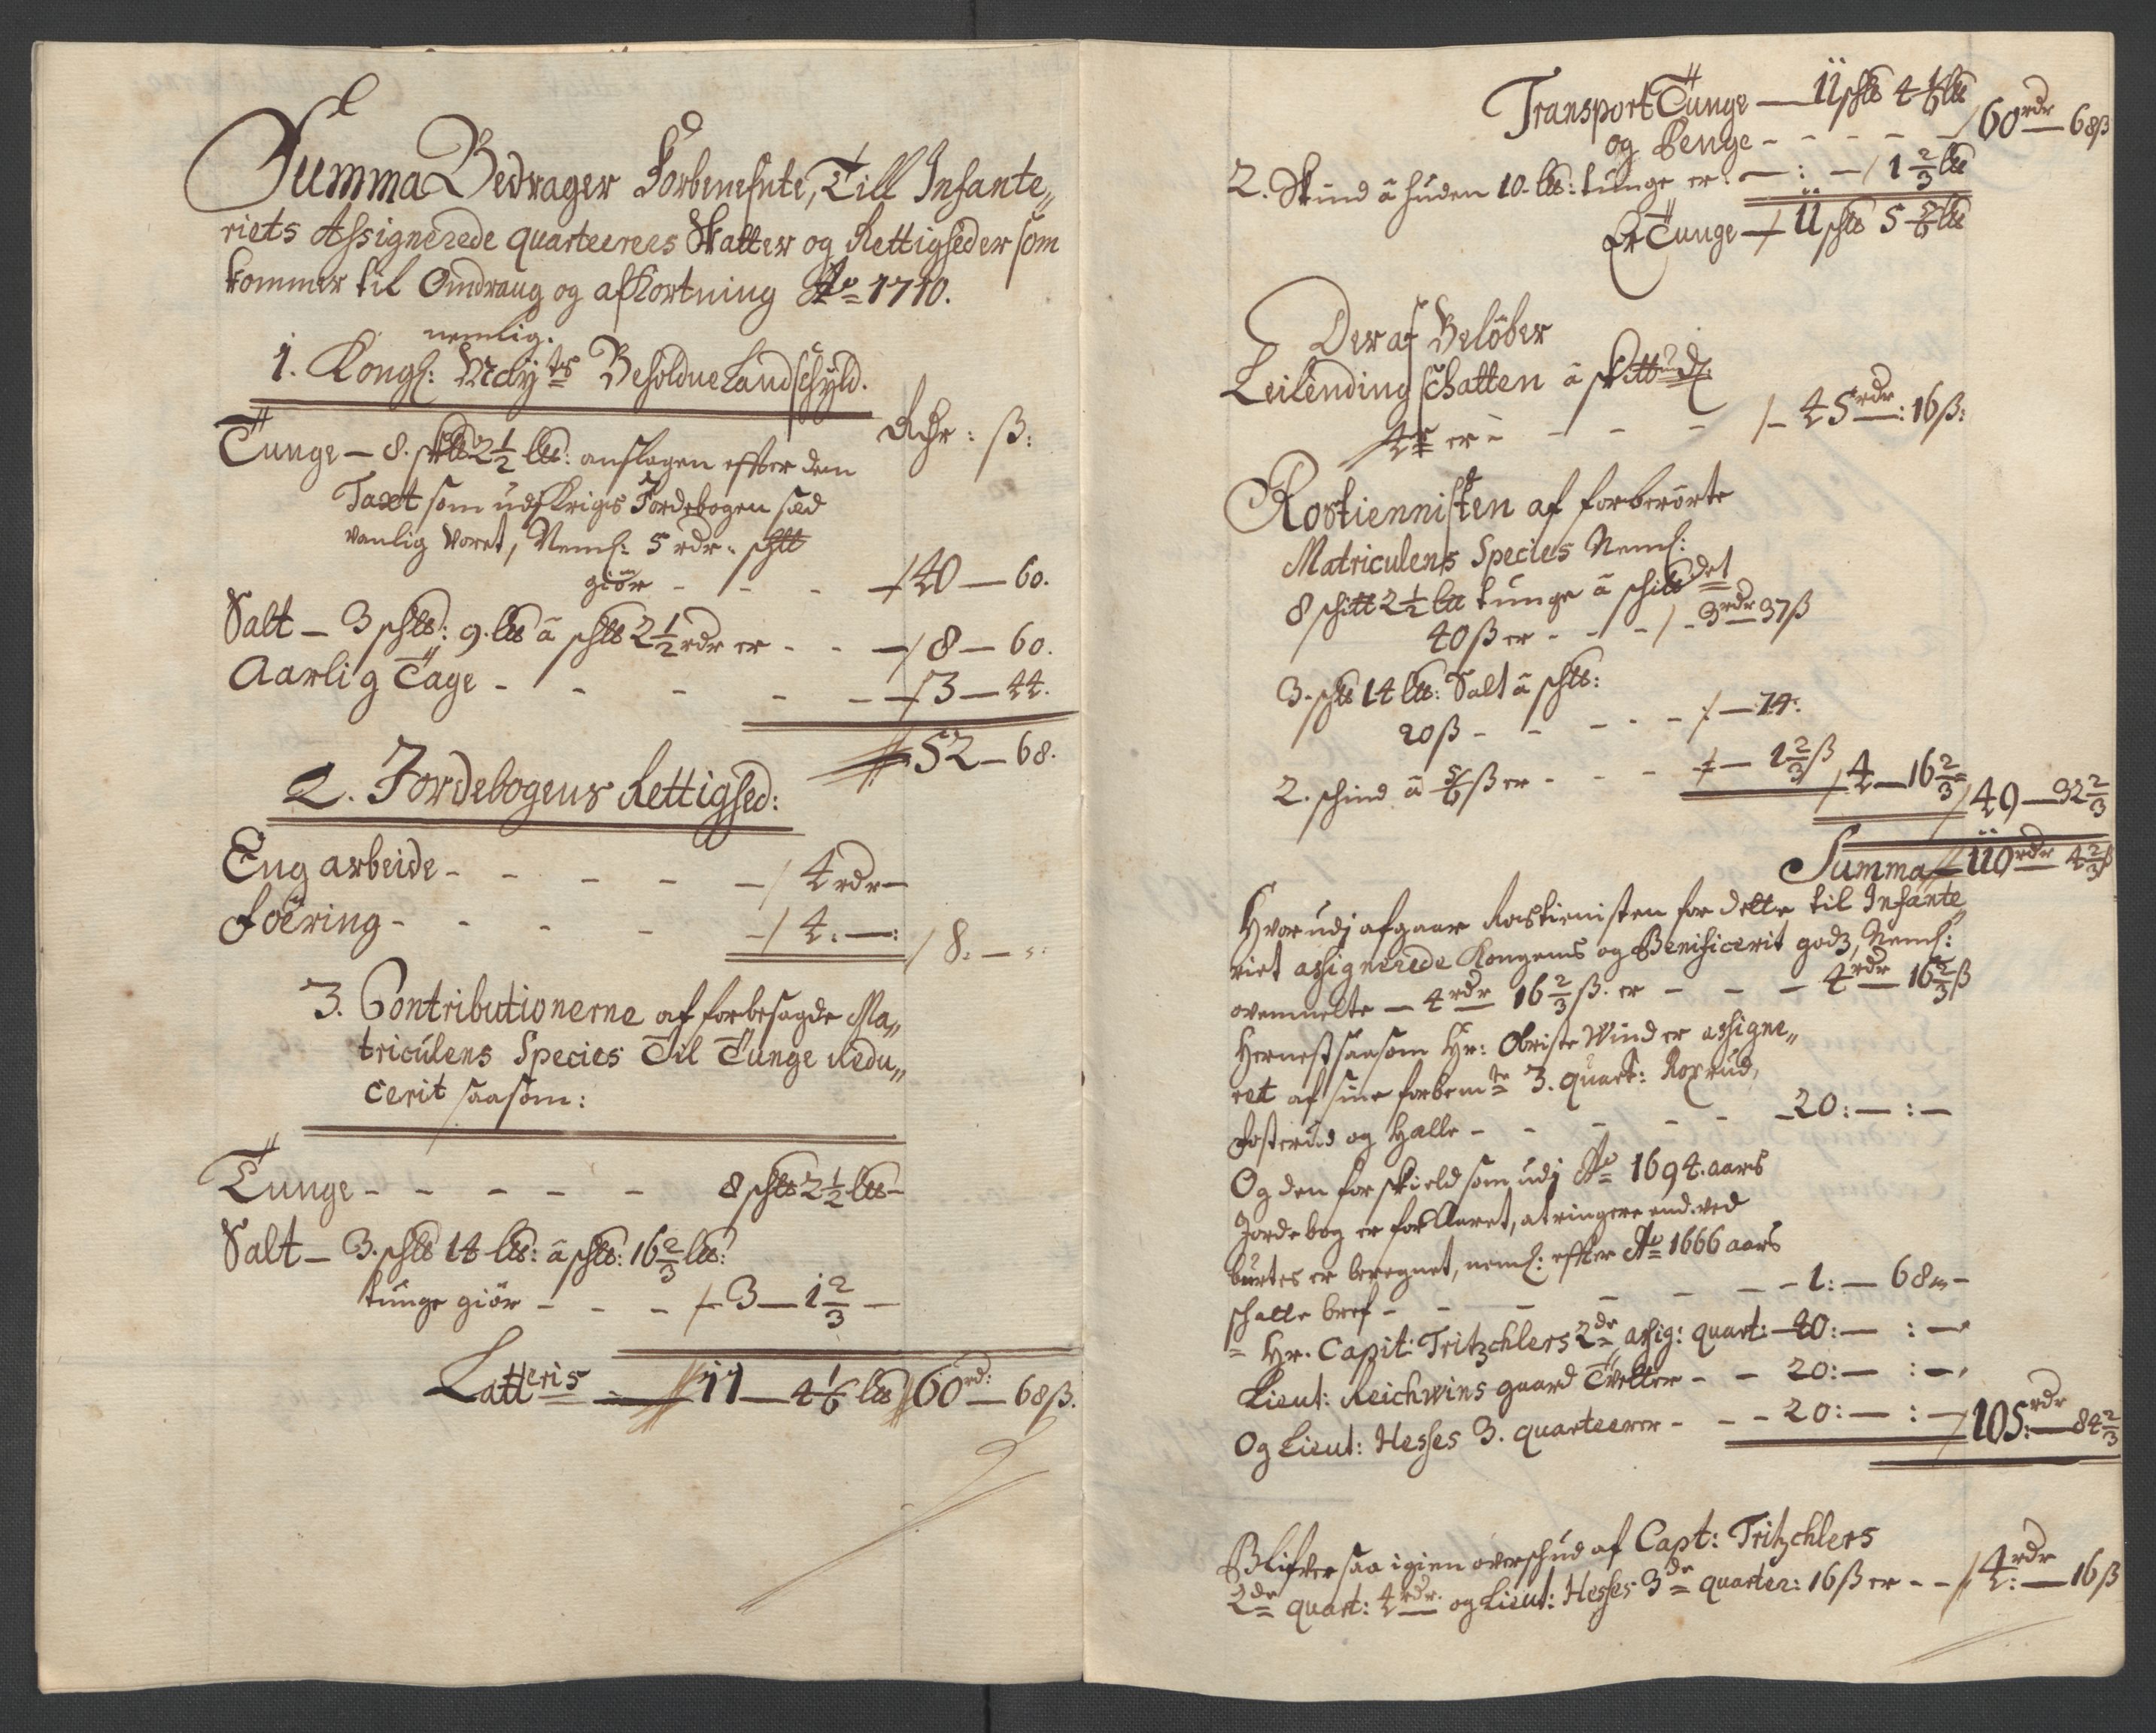 Summa Bedrager Forbenefnte, Till Infante„
riets Assignerede quarteerers Skatter og Rettigheder som
kommer til Omdraug og afkortning Ao 1710.
nemlig.
1. Kongl: Mayts Beholdne Landschyld.
Rdr: ß:
Tunge – 8. schtt 2 1/2 ltt: anslagen effter dem
Taxt som udj Krigs Jordebogen sæd
vanlig woret, Neml: 5 rdr: schtt
giør - - - 40 — 60.
Salt – 3 schtt: 9. ltt â schtt 2 1/2 rdr er - - 8 — 60.
Aarlig Tage - - - - 3 — 44.
52 — 68.
2. Jordebogens Rettighed:
Eng arbeide - - - - 4 rdr —
Foëring - - - - 4. —: 8: — :
3. Contributionerne af forbesagde Ma„
triculens Species Til Tunge Redu„
cerit saasom:
Tunge - - - - - 8 schtt 2 1/2 ltt –
Salt – 3. schtt 14 ltt: â schtt: 16 2/3 ltt:
tunge giör - - - 3 — 1 2/3 —
Latteris — 11 — 4 1/6 ltt 60 rd: — 68 ß.
Transport Tunge — 11 schtt 4 1/6 ltt
og Penge - - - - - 60 rdr — 68 ß
2. Skind â huden 10. ltt: tunge er: — : — 1 2/3 ltt
Er Tunge — 11 schtt 5 5/6 ltt
Deraf Belöber
Leilending schatten â skittund:
4 rdr er - - - - 45 rdr: 16 ß:
Rostiennisten af forberörte
Matriculens Species Neml:
8 schitt 2 1/2 ltt tunge â schittdet
40 ß er - - - 3 rdr 37 ß
3. schtt 14 ltt: Salt â schtt:
20 ß - - - - - — 74:
2. schind â 5/6 ß er - - - — 1 2/3 ß 4 — 16 2/3 49 — 32 2/3
Summa 110 rdr — 4 2/3 ß
Hvorudj afgaar Rostienisten for dette til Infante„
riet assignerede Kongens og Benificerit godz, Neml:
ovenmelte — 4 rdr 16 2/3 ß. er - - - 4 rdr — 16 2/3 ß
Hernest saasom Hr: Obriste Wind er assigne„
ret af sine forbemte 3. quart: Roxrud,
Fosterud og Halle - - - - - 20: — : —
Og den forskield som udj Ao 1694. aars
Jordebog er forklaret, at ringere end ved
burtes er beregnet, neml: effter Ao 1666 aars
schatte bref - - - - - - 1: — 68 —
Hr. Capit: Tritzchlers 2de assig: quart: — 40: — : —
Lieut: Reichwins gaard Tvetter - - 20: — : —
Og Lieut: Hesses 3. quarteerer - - - 20: — : — 105: rdr — 84 2/3
Blifver saa igien overschud af Capt: Tritzchlers
2de quart: 4 rdr. og Lieut: Hesses 3de quarter: 16 ß er - - 4: rdr — 16 ß